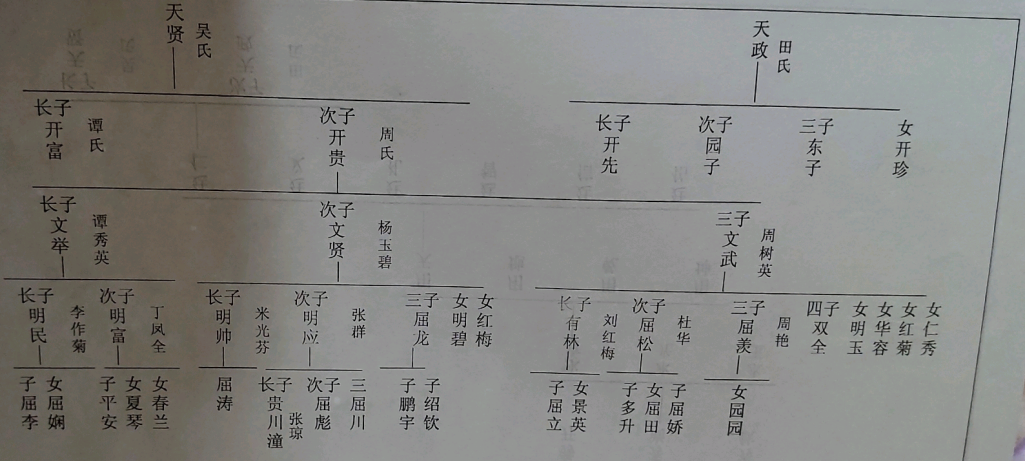 天贤
吴氏
天政
田氏
长子开富
谭氏
次子开贵
周氏
长子开先
次子园子
三子东子
女开珍
长子文举
谭秀英
次子文贤
杨玉碧
三子文武
周树英
长子明民
李作菊
次子明富
丁凤全
长子明帅
米光芬
次子明应
张群
三子屈龙
女明碧
女红梅
长子有林
刘红梅
次子屈松
杜华
三子屈羡
周艳
四子双全
女明玉
女华容
女红菊
女仁秀
子屈李
女屈娴
子平安
女夏琴
女春兰
屈涛
长子贵川潼
张琼
次子屈彪
三屈川
子鹏宇
子绍钦
子屈立
女景英
子多升
女屈田
子屈娇
女园园